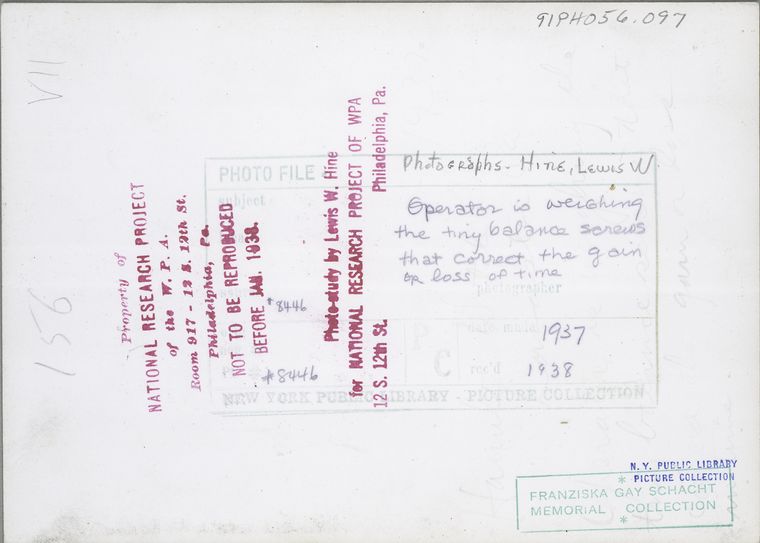 91PH056.097
VII
156
Property of
NATIONAL RESEARCH PROJECT
of the W. P. A.
Room 917 - 12 S. 12th St.
Philadelphia, Pa.
NOT TO BE REPRODUCED
BEFORE JAN. 1938.
#8446
#8446
Photo-study by Lewis W. Hine
for NATIONAL RESEARCH PROJECT OF WPA
12 S. 12th St. Philadelphia, Pa.
PHOTO FILE
Photographs - Hine, Lewis W
subject
Operator is weighing
the tiny balance screws
that correct the gain
or loss of time
photographer
P
C
date made 1937
rec'd 1938
NEW YORK PUBLIC LIBRARY - PICTURE COLLECTION
N. Y. PUBLIC LIBRARY
PICTURE COLLECTION
FRANZISKA GAY SCHACHT
MEMORIAL COLLECTION